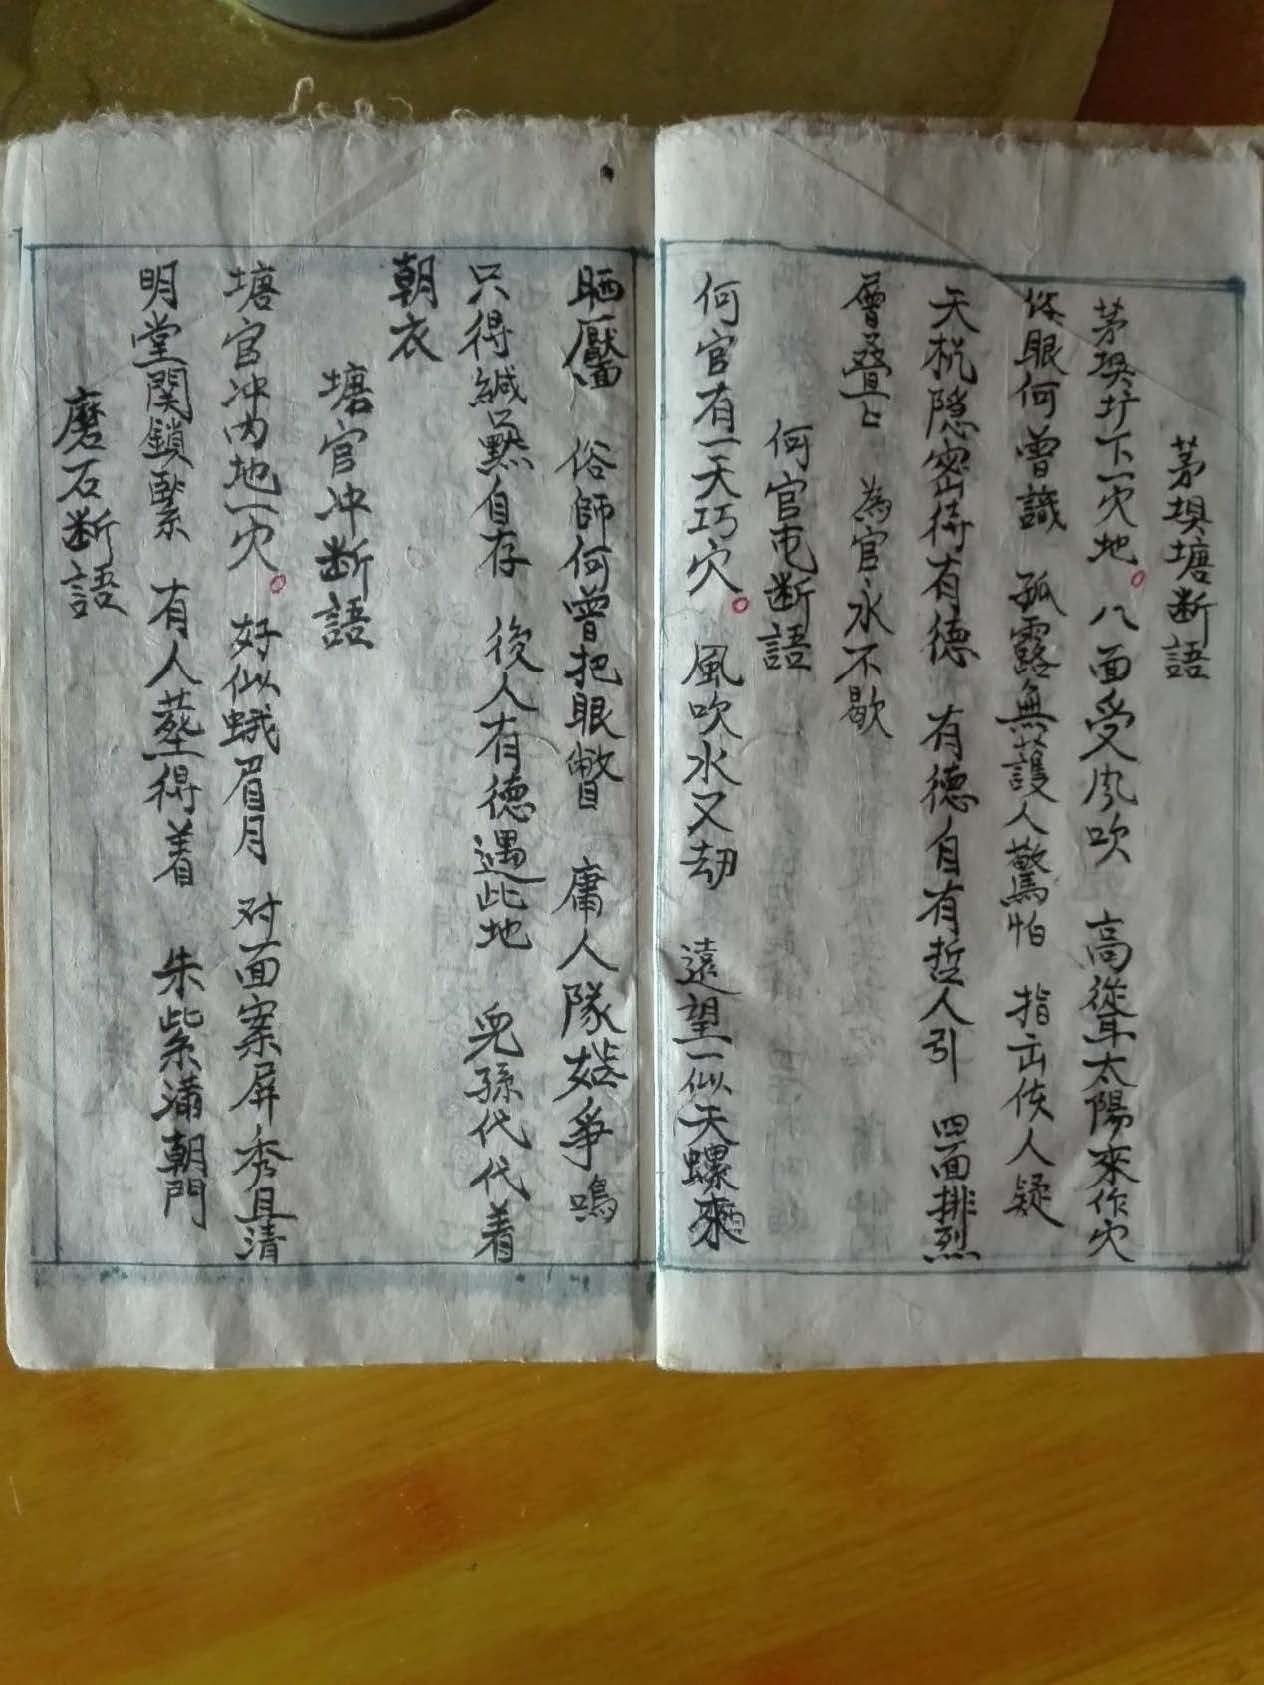 茅垻塘断語
茅垻圹下一穴地。八面受風吹 高從耳太陽來作穴
俗眼何曾識 孤露無護人驚怕 指出使人疑
天机隐密待有德 有德自有哲人引 四面排烈
層叠上 為官永不歇
何官屯断語
何官有一天巧穴。 風吹水又劫 遠望一似天螺來
晒靨 俗師何曾把眼瞥 庸人隊 争鳴
只得緘默自存 後人有德遇此地 児孫代代着
朝衣
塘官冲断語
塘官冲内地一穴。 好似蛾眉月 对面案屏秀且清
明堂関鎖緊 有人塟得着 朱紫滿朝門
磨石断語